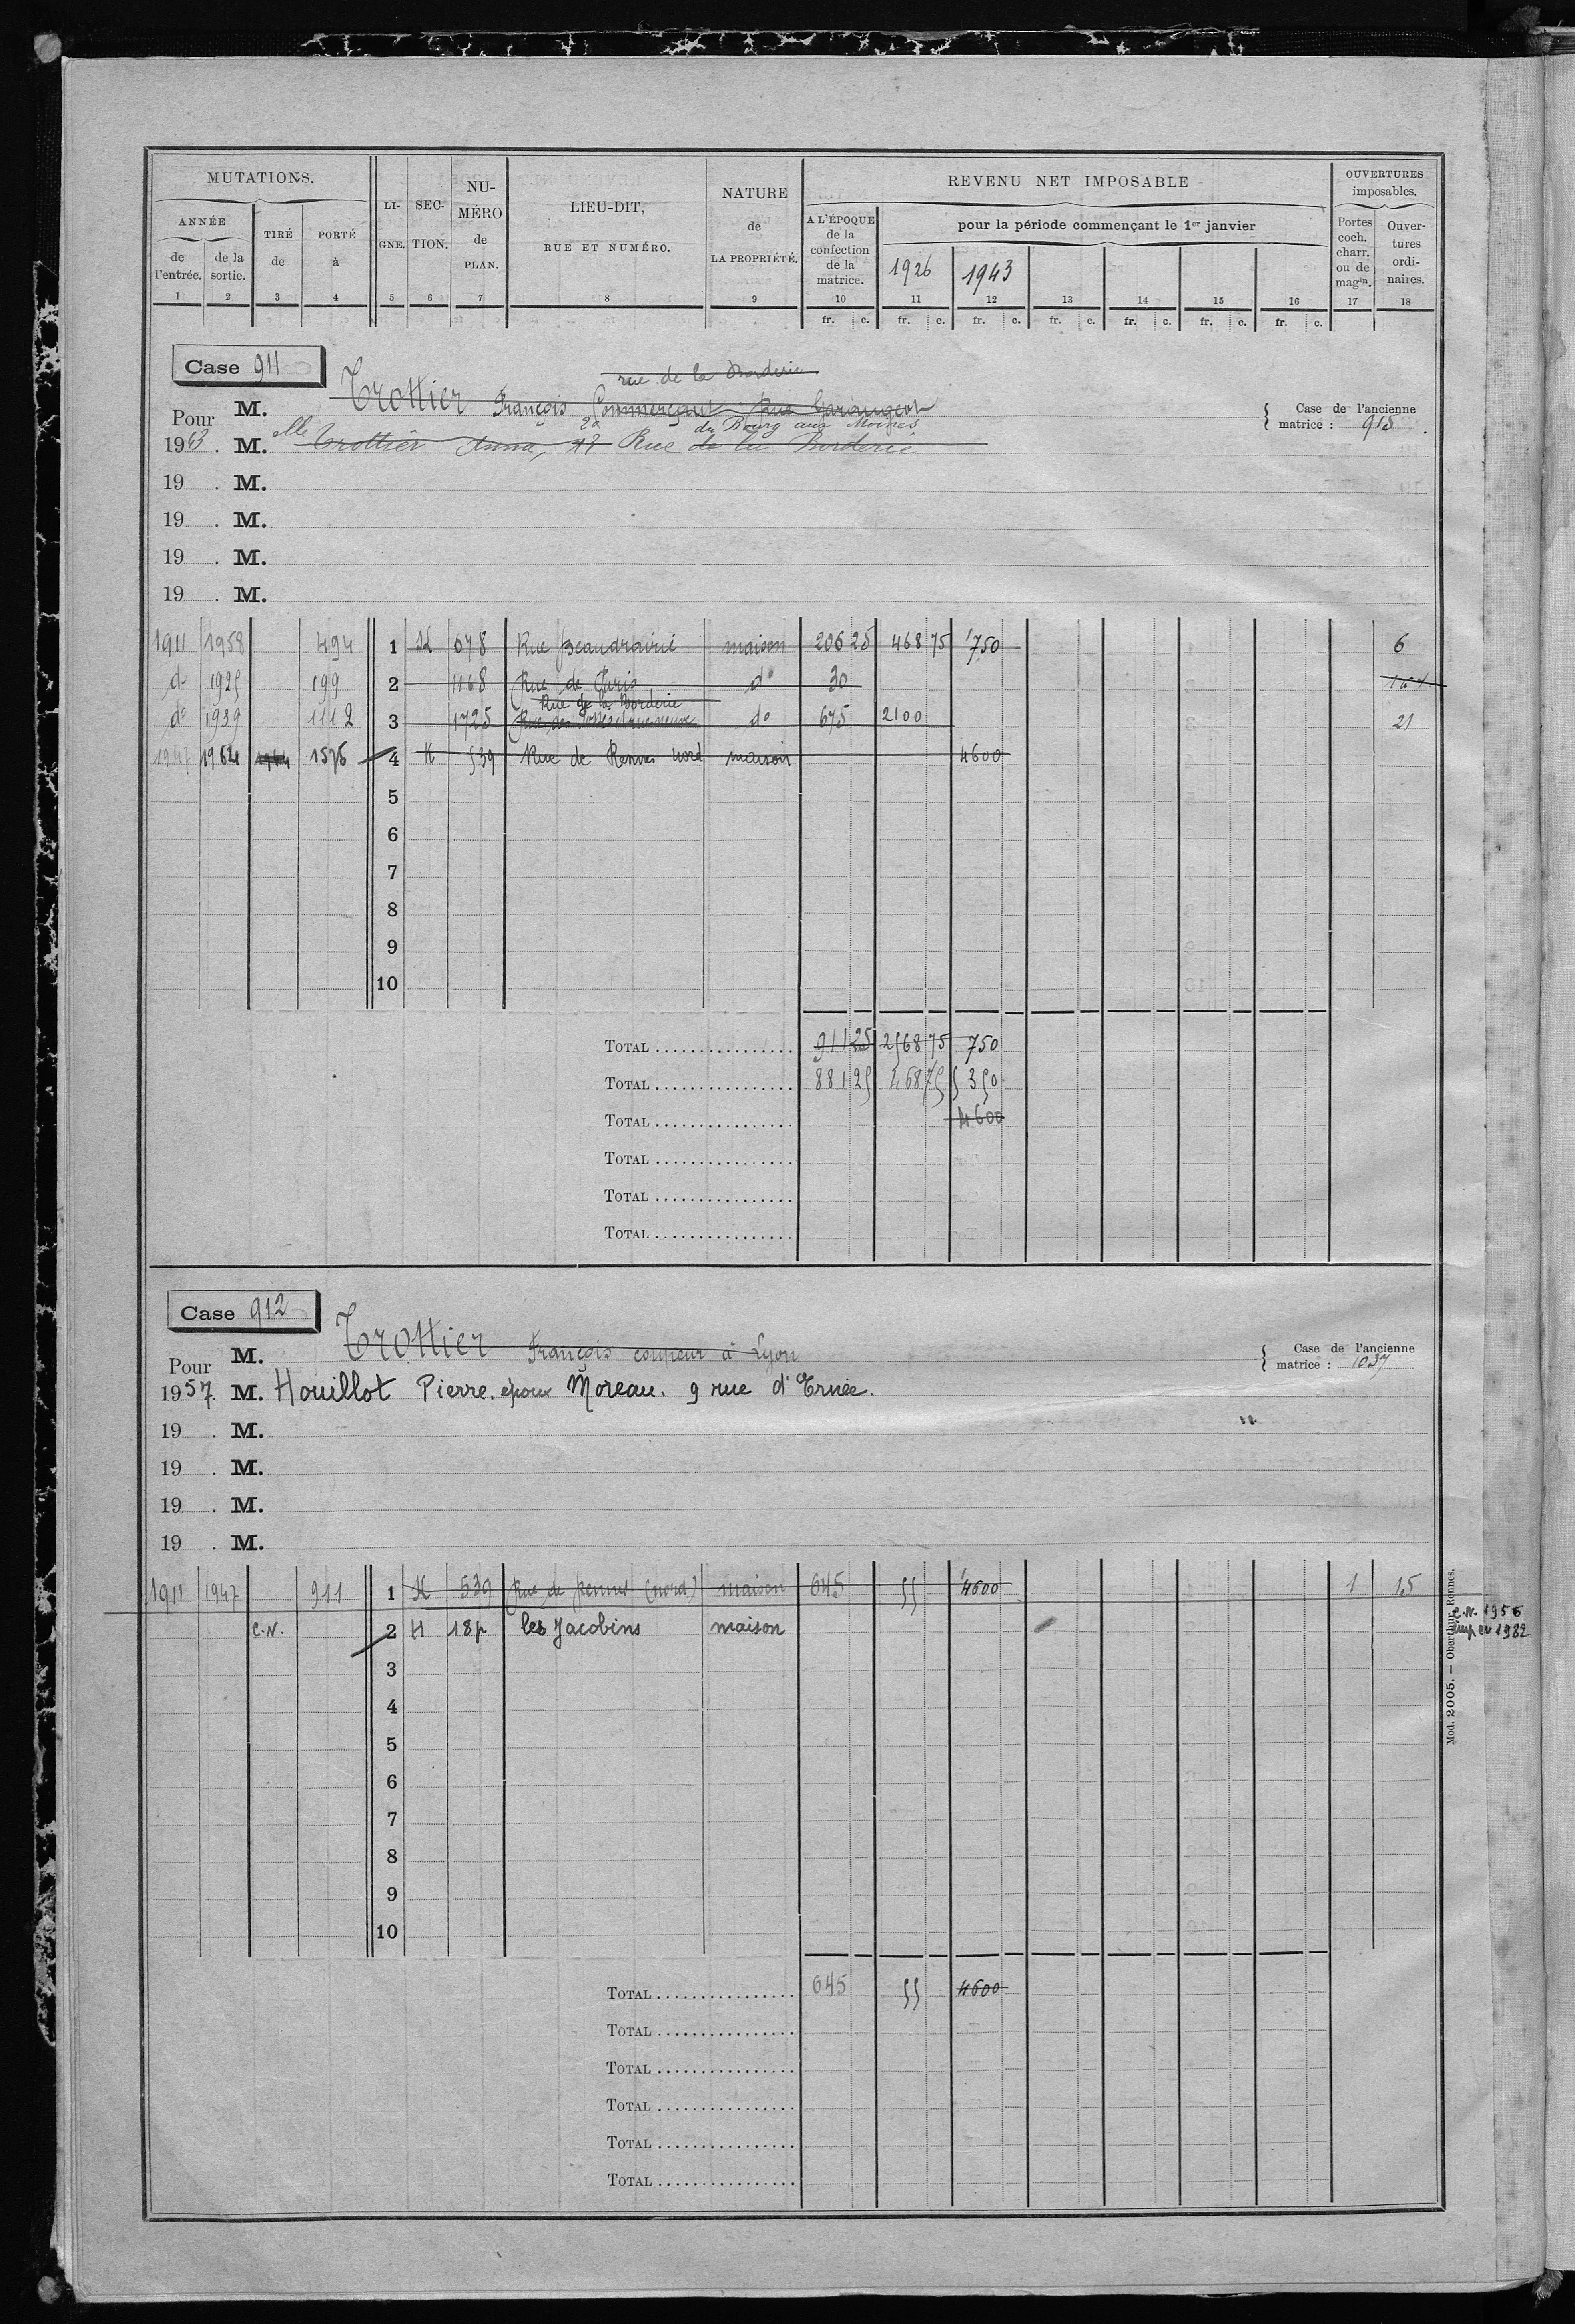 MUTATIONS.
ANNÉE
de l'entrée. de la sortie. TIRÉ de PORTÉ à
LI-GNE. SEC-TION. NU-MÉRO de PLAN. LIEU-DIT, RUE ET NUMÉRO. NATURE de LA PROPRIÉTÉ.
REVENU NET IMPOSABLE
A L'ÉPOQUE de la confection de la matrice. pour la période commençant le 1er janvier
1926 1943
OUVERTURES imposables.
Portes coch. charr. ou de magin. Ouver-tures ordi-naires.
1 2 3 4 5 6 7 8 9 10 11 12 13 14 15 16 17 18
fr. c. fr. c. fr. c. fr. c. fr. c. fr. c. fr. c.
Case 911
rue de la Borderie
Pour M. Trottier François Commerçant Rue Garangeot
Case de l'ancienne matrice : 915
20 du Bourg aux Moines
1963. M.elle Trottier Anna, 13 Rue de la Borderie
19 . M.
19 . M.
19 . M.
19 . M.
1911 1958 494 1 078 Rue Beaudrairie maison 206 25 468 75 750 6
do 1925 199 2 1168 Rue de Paris do 30
Rue de la Borderie
do 1939 1112 3 1725 do 675 2100 21
1947 1964 1576 4 K 539 Rue de Rennes nord maison 4600
5
6
7
8
9
10
TOTAL 911 25 2568 75 750
TOTAL 881 25 468 75 5350
TOTAL 4600
TOTAL
TOTAL
TOTAL
Case 912
Pour M. Trottier François coupeur à Lyon
Case de l'ancienne matrice : 1037
1957. M. Houillot Pierre. époux Moreau. 9 rue d'Ernée.
19 . M.
19 . M.
19 . M.
19 . M.
1911 1947 911 1 K 539 Rue de Rennes (nord) maison 645 55 4600 1 15
C.N. 2 H 18p les Jacobins maison
C.N. 1956
imp en 1982
3
4
5
6
7
8
9
10
TOTAL 645 55 4600
TOTAL
TOTAL
TOTAL
TOTAL
TOTAL
Mod. 2005. — Oberthur, Rennes.